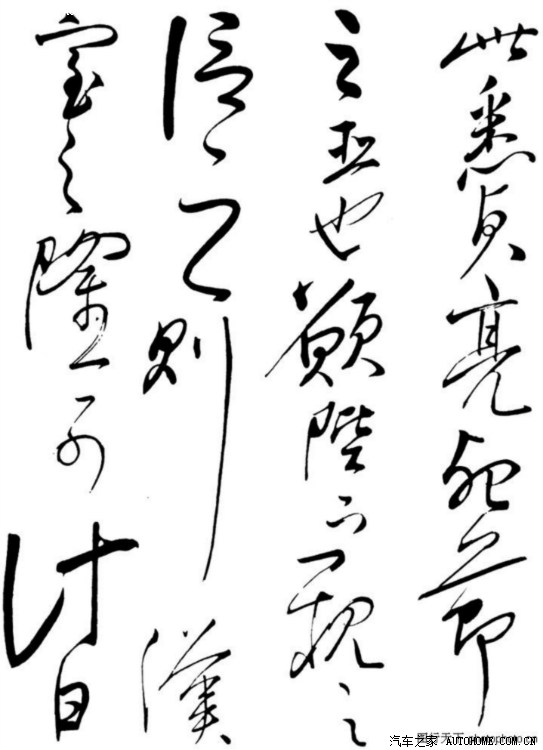 此悉貞亮死節
之臣也願陛下親之
信之則漢
室之隆可計日
汽车之家 AUTOHOME.COM.CN